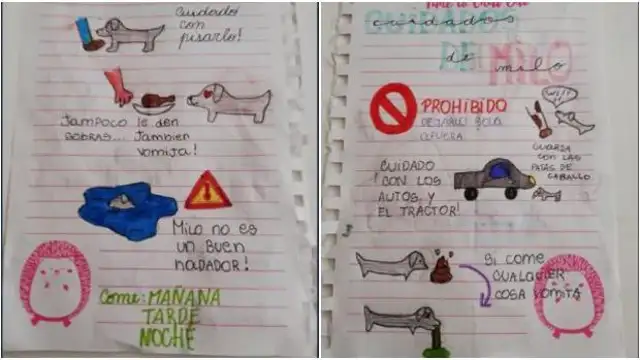 Cuidado
con
pisarlo!
Tampoco le den
sobras... Tambien
vomita!
Milo no es
un buen
nadador!
Come: MAÑANA
TARDE
NOCHE
cuidados
de milo
CUIDADOS
DE MILO
PROHIBIDO
DEJARLO SOLO
AFUERA
GUARDA
CON LAS
PATAS DE
CABALLO
CUIDADO
CON LOS
AUTOS Y
EL TRACTOR!
Si come
CUALQUIER
COSA VOMITA